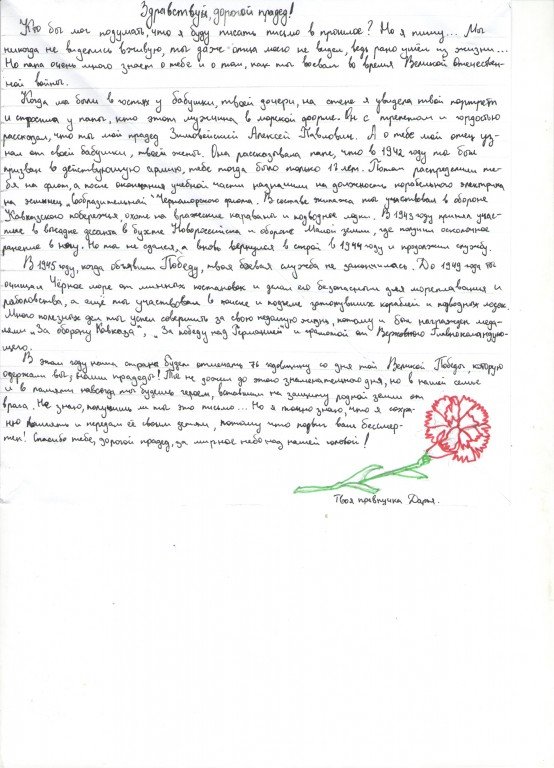 Здравствуй, дорогой прадед!
Кто бы мог подумать, что я буду писать письмо в прошлое? Но я пишу... Мы
никогда не виделись вживую, ты даже отца моего не видел, ведь рано ушёл из жизни...
Но папа очень много знает о тебе и о том, как ты воевал во время Великой Отечествен-
ной войны.
Когда мы были в гостях у бабушки, твоей дочери, на стене я увидела твой портрет
и спросила у папы, кто этот мужчина в морской форме. Он с трепетом и гордостью
рассказал, что ты мой прадед Зимовейский Алексей Павлович. А о тебе мой отец уз-
нал от своей бабушки, твоей жены. Она рассказывала папе, что в 1942 году ты был
призван в действующую армию, тебе тогда было только 17 лет. Потом распределили те-
бя на флот, а после окончания учебной части назначили на должность корабельного электрика
на эсминец „Сообразительный" Черноморского флота. В составе экипажа ты участвовал в обороне
Кавказского побережья, охоте на вражеские караваны и подводные лодки. В 1943 году принял учас-
тие в высадке десанта в бухте Новороссийска и обороне Малой земли, где получил осколочное
ранение в ногу. Но ты не сдался, а вновь вернулся в строй в 1944 году и продолжил службу.
В 1945 году, когда объявили Победу, твоя боевая служба не закончилась. До 1949 года ты
очищал Чёрное море от минных постановок и делал его безопасным для мореплавания и
рыболовства, а ещё ты участвовал в поиске и подъёме затонувших кораблей и подводных лодок.
Много полезных дел ты успел совершить за свою недолгую жизнь, потому и был награждён меда-
лями „За оборону Кавказа", „За победу над Германией" и грамотой от Верховного Главнокомандую-
щего.
В этом году наша страна будет отмечать 76 годовщину со дня той Великой Победы, которую
одержали вы, наши прадеды! Ты не дожил до этого знаменательного дня, но в нашей семье
и в памяти навсегда ты будешь героем, вставшим на защиту родной земли от
врага. Не знаю, получишь ли ты это письмо... Но я точно знаю, что я сохра-
ню память и передам её своим детям, потому что подвиг ваш бессмер-
тен! Спасибо тебе, дорогой прадед, за мирное небо над нашей головой!
Твоя правнучка Дарья.